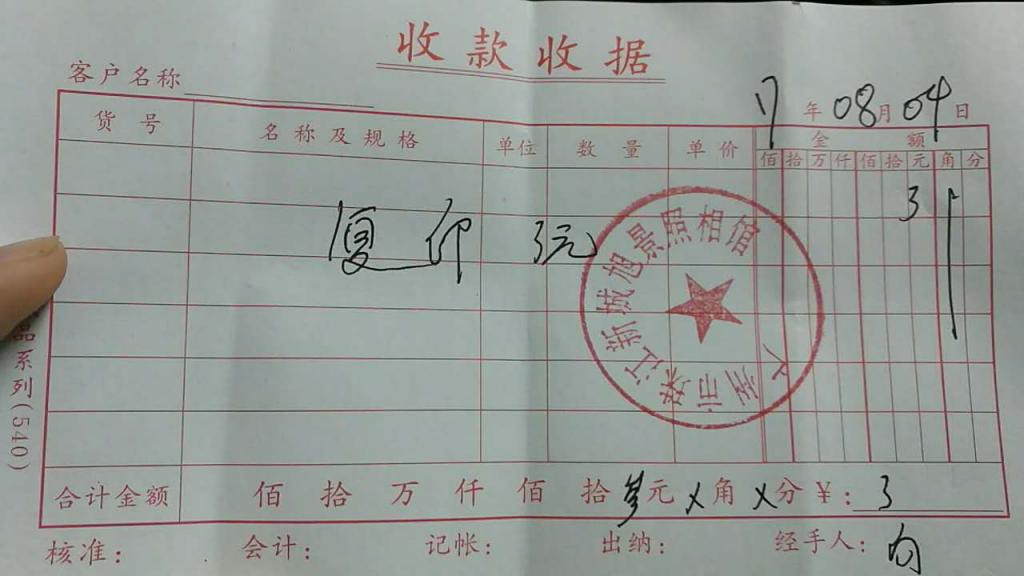 收款收据
客户名称
17年08月04日
货号 名称及规格 单位 数量 单价 金额
佰 拾 万 仟 佰 拾 元 角 分
3
复印 3元
广州市珠江新城旭景照相馆
品系列(540)
合计金额 佰 拾 万 仟 佰 拾 叁元 X角 X分 ¥: 3
核准: 会计: 记帐: 出纳: 经手人: